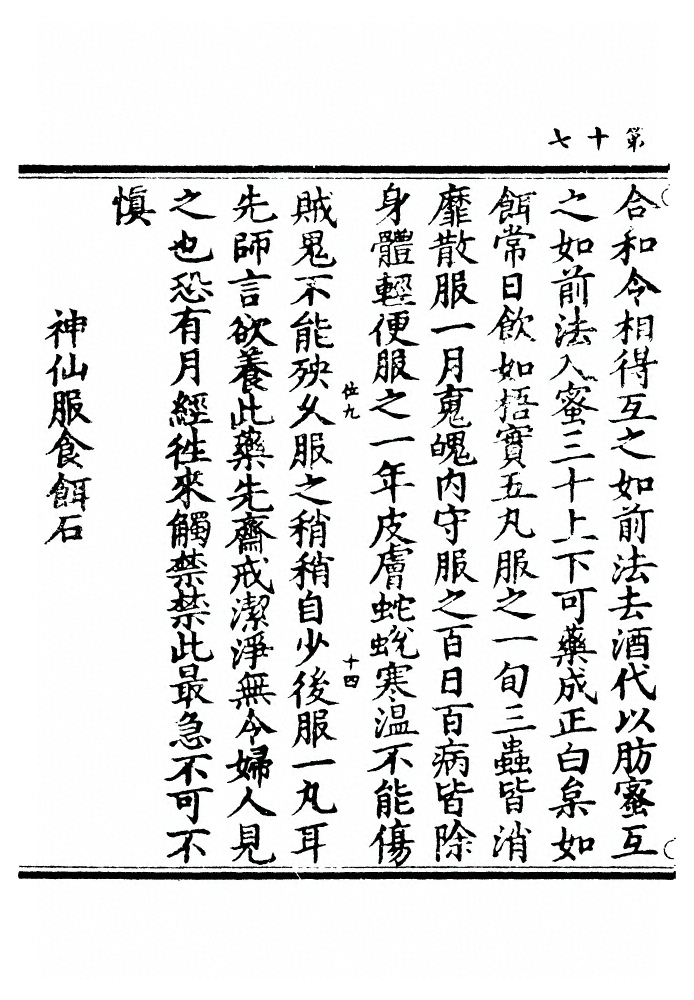 第十七
合和令相得互之如前法去酒代以肪蜜互
之如前法入蜜三十上下可藥成正白枲如
餌常日飲如梧實五丸服之一旬三蟲皆消
靡散服一月䰟魄內守服之百日百病皆除
身體輕便服之一年皮膚蛇蛻寒温不能傷
位九
十四
賊鬼不能殃久服之稍稍自少後服一丸耳
先師言欲養此藥先齋戒潔淨無令婦人見
之也恐有月經徃來觸禁禁此最急不可不
慎
神仙服食餌石